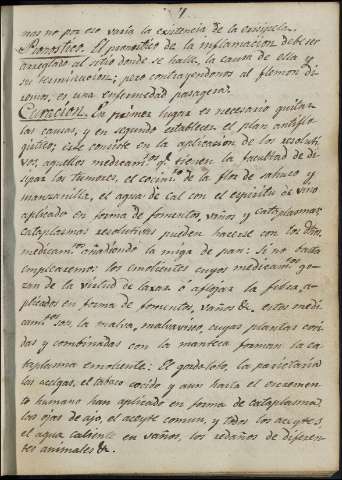 7
mas no por eso varia la existencia de la erisipela.
Pronostico. El pronostico de la inflamacion debe ser
arreglado al sitio donde se halla, la causa de ella y
su terminacion; pero contrayendonos al flemon di-
remos, es una enfermedad pasagera.
Curacion. En primer lugar es necesario quitar
las causas, y en segundo establecer el plan antiflo-
gistico; este consiste en la aplicacion de los resoluti-
vos, aquellos medicamtos qe tienen la facultad de di-
sipar los tumores, el cocimto de la flor de sahuco y
manzanilla, el agua de cal con el espiritu de vino
aplicado en forma de fomentos, vaños y cataplasmas;
cataplasmas resolutivas pueden hacerse con los dhos
medicamtos añadiendo la miga de pan: Si no basta
emplearemos los emolientes cuyos medicamtos go-
zan de la virtud de laxar ó aflojar la fibra, a-
plicados en forma de fomentos, vaños &a. estos medi-
camtos son la malva, malvavisco, cuyas plantas coci-
das y combinadas con la manteca forman la ca-
taplasma emoliente: El gordolobo, la parietaria
las acelgas, el tabaco cocido y aun hasta el excremen-
to humano han aplicado en forma de cataplasma,
las ojas de ajo, el aceyte comun, y todos los aceytes,
el agua caliente en vaños, los redaños de diferen-
tes animales &a.